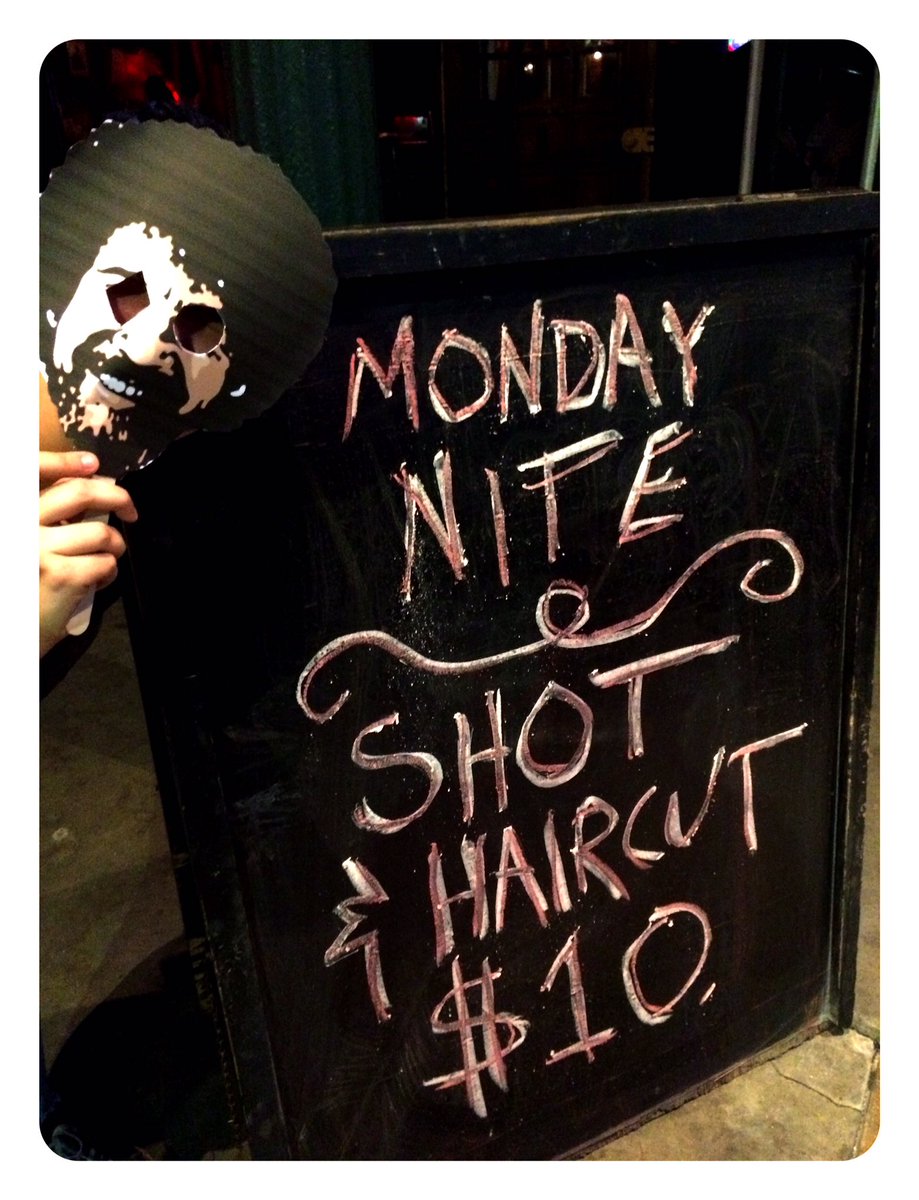 MONDAY
NITE
SHOT
& HAIRCUT
$10.